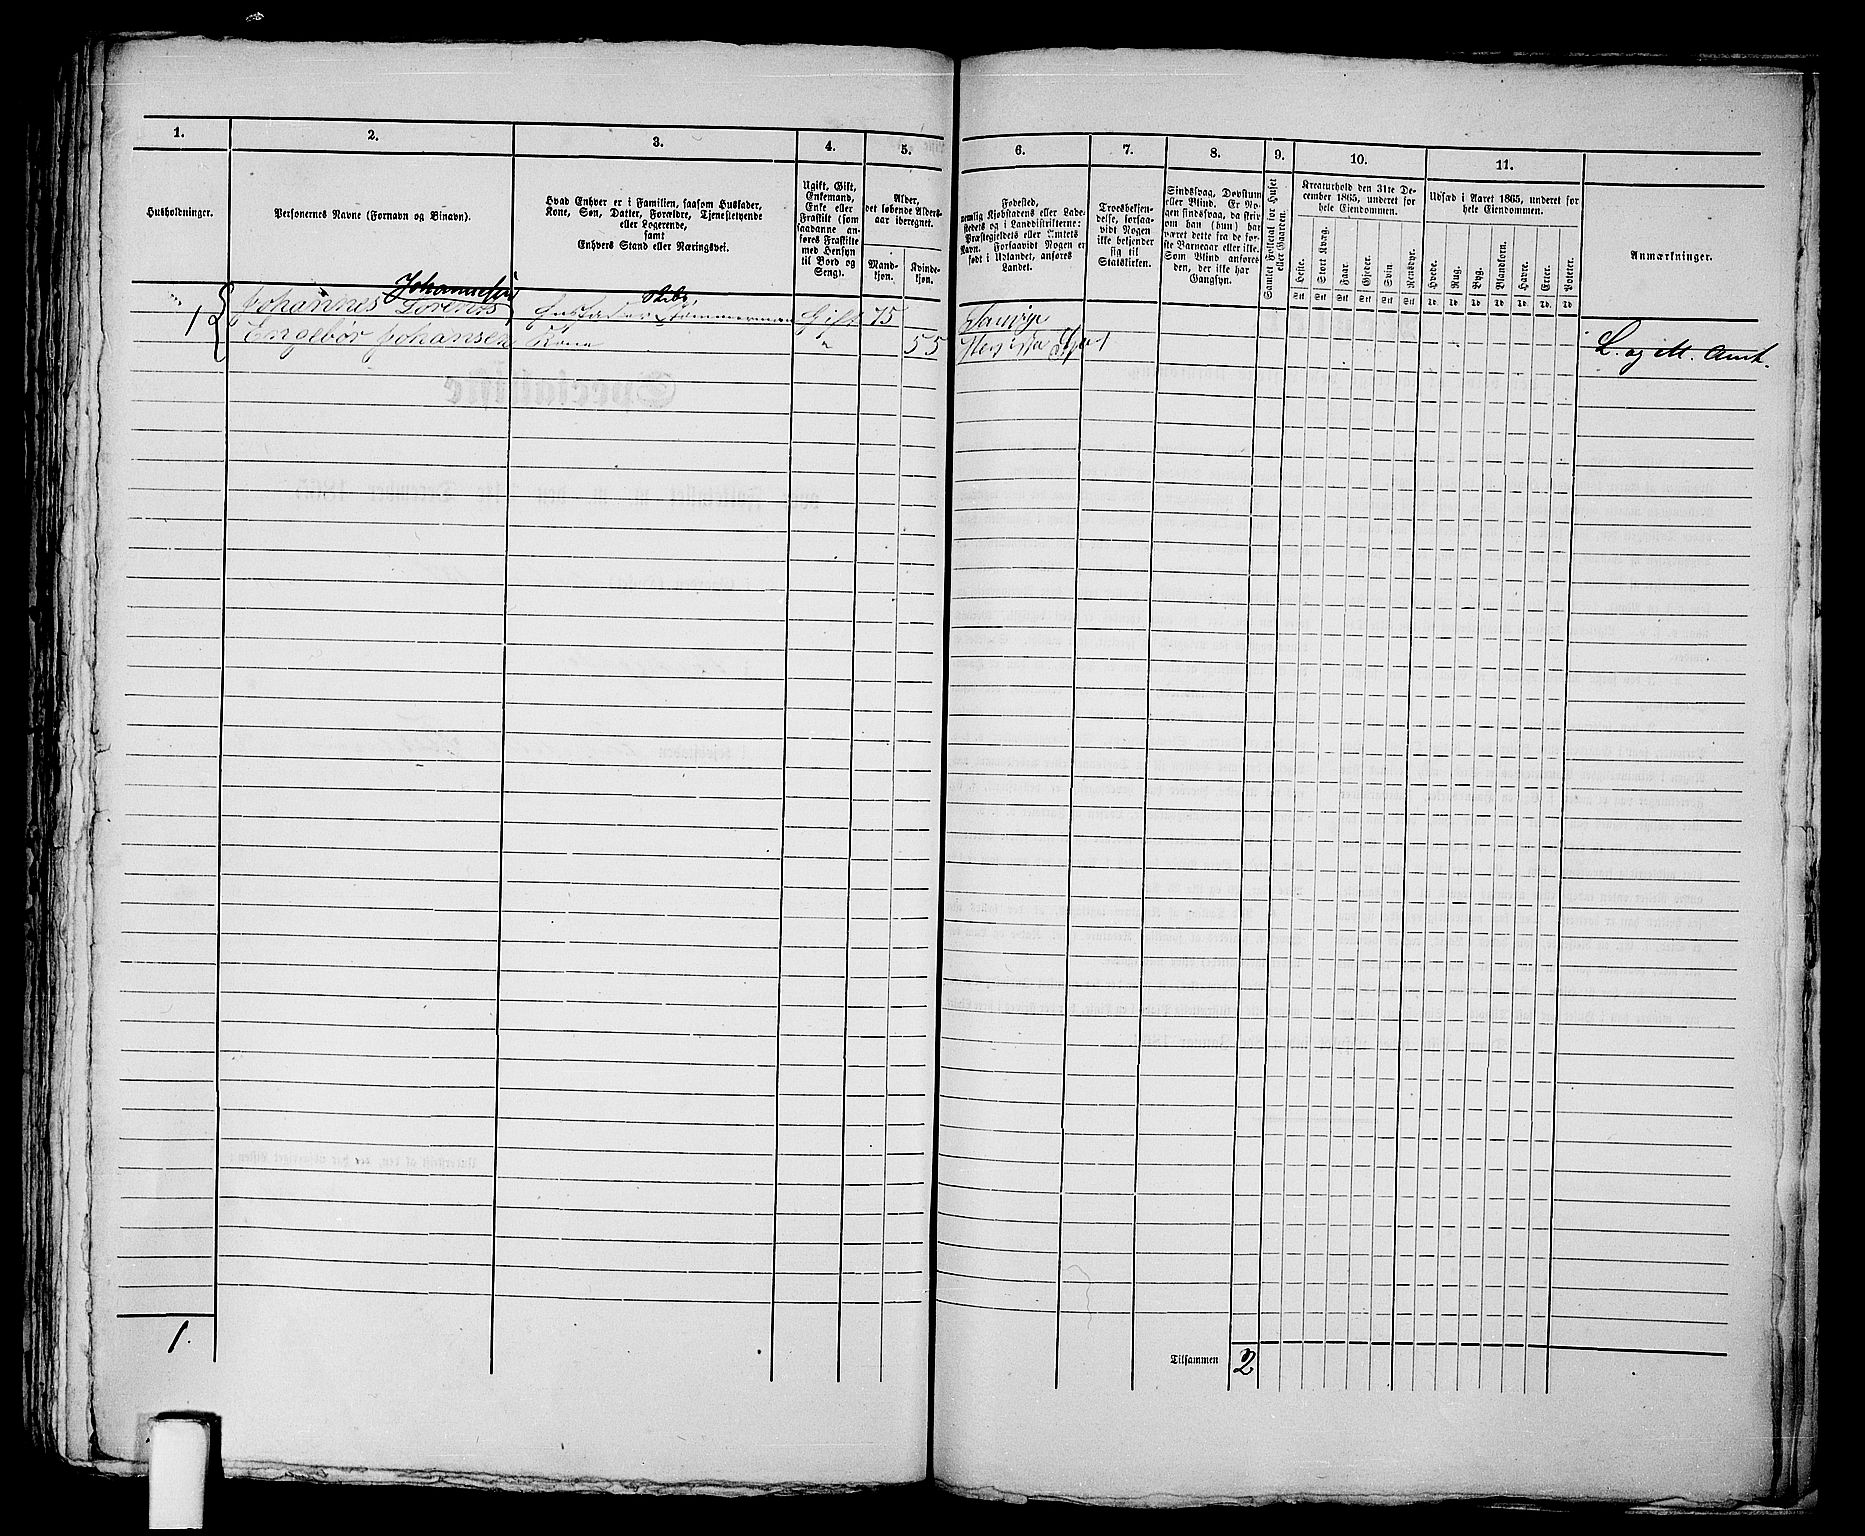 1.
2.
3.
4.
5.
6.
7.
8.
9.
10.
11.
Husholdninger.
Personernes Navne (Fornavn og Binavn).
Hvad Enhver er i Familien, saasom Husfader,
Kone, Søn, Datter, Forældre, Tjenestetyende
eller Logerende,
samt
Enhvers Stand eller Næringsvei.
Ugift, Gift,
Enkemand,
Enke eller
Fraskilt (som
saadanne an-
føres Fraskilte
med Hensyn
til Bord og
Seng).
Alder,
det løbende Alders-
aar iberegnet.
Mand-
kjøn.
Kvinde-
kjøn.
Fødested,
nemlig Kjøbstadens eller Lade-
stedets og i Landdistrikterne:
Præstegjeldets eller Amtets
Navn. Forsaavidt Nogen er
født i Udlandet, anføres
Landet.
Troesbekjen-
delse, forsaa-
vidt Nogen
ikke bekjender
sig til
Statskirken.
Sindssvag, Døvstum
eller Blind. Er No-
gen sindssvag, da skriv
om han (hun) har
været dette fra de før-
ste Barneaar eller ikke.
Som Blind anføres
den, der ikke har
Gangsyn.
Samlet Folketal for Huset
eller Gaarden.
Kreaturhold den 31te De-
cember 1865, underet for
hele Eiendommen.
Heste.
Stort Kvæg.
Faar.
Gjeder.
Svin.
Rensdyr.
Stk Stk Stk Stk Stk Stk
Udsæd i Aaret 1865, underet for
hele Eiendommen.
Hvede.
Rug.
Byg.
Blandkorn.
Havre.
Erter.
Poteter.
Td. Td. Td. Td. Td. Td. Td
Anmærkninger.
Johannesen Skibs
1 Johannes Lorents Husfader Tømmerman Gift 75
Engebør Johansen Kone " 55
L. og M. Amt.
1.
Tilsammen 2